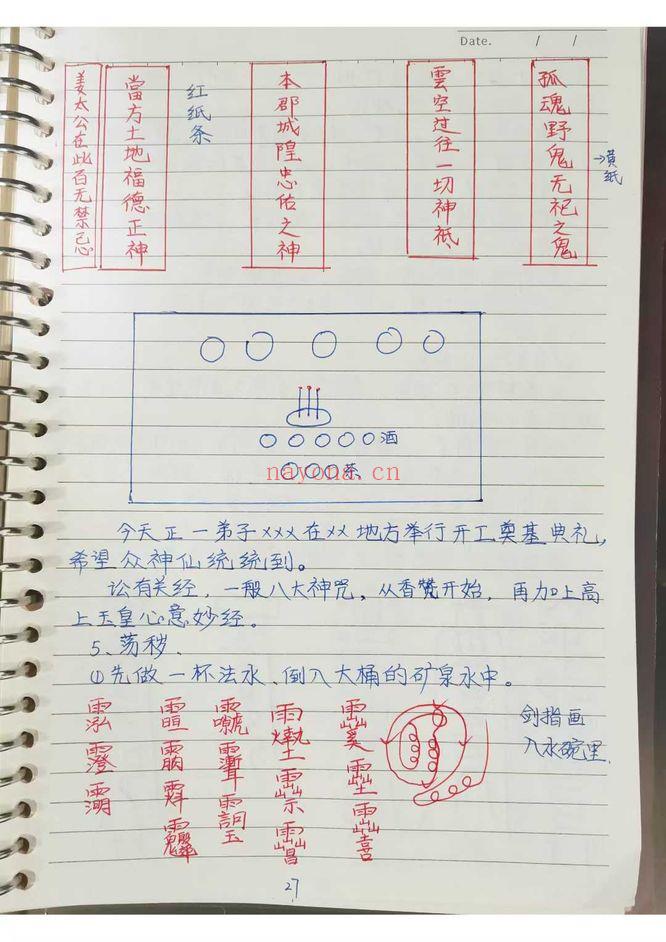 Date. / /
姜太公在此百无禁忌
當方土地福德正神
红纸条
本郡城隍忠佑之神
雲空过往一切神祗
孤魂野鬼无祀之鬼
→黄纸
酒
茶
nayona.cn
今天正一弟子×××在××地方举行开工奠基典礼,
希望众神仙统统到。
讼有关经,一般八大神咒,从香赞开始,再加上高
上玉皇心意妙经。
5、荡秽.
①先做一杯法水、倒入大桶的矿泉水中。
剑指画
入水碗里.
27